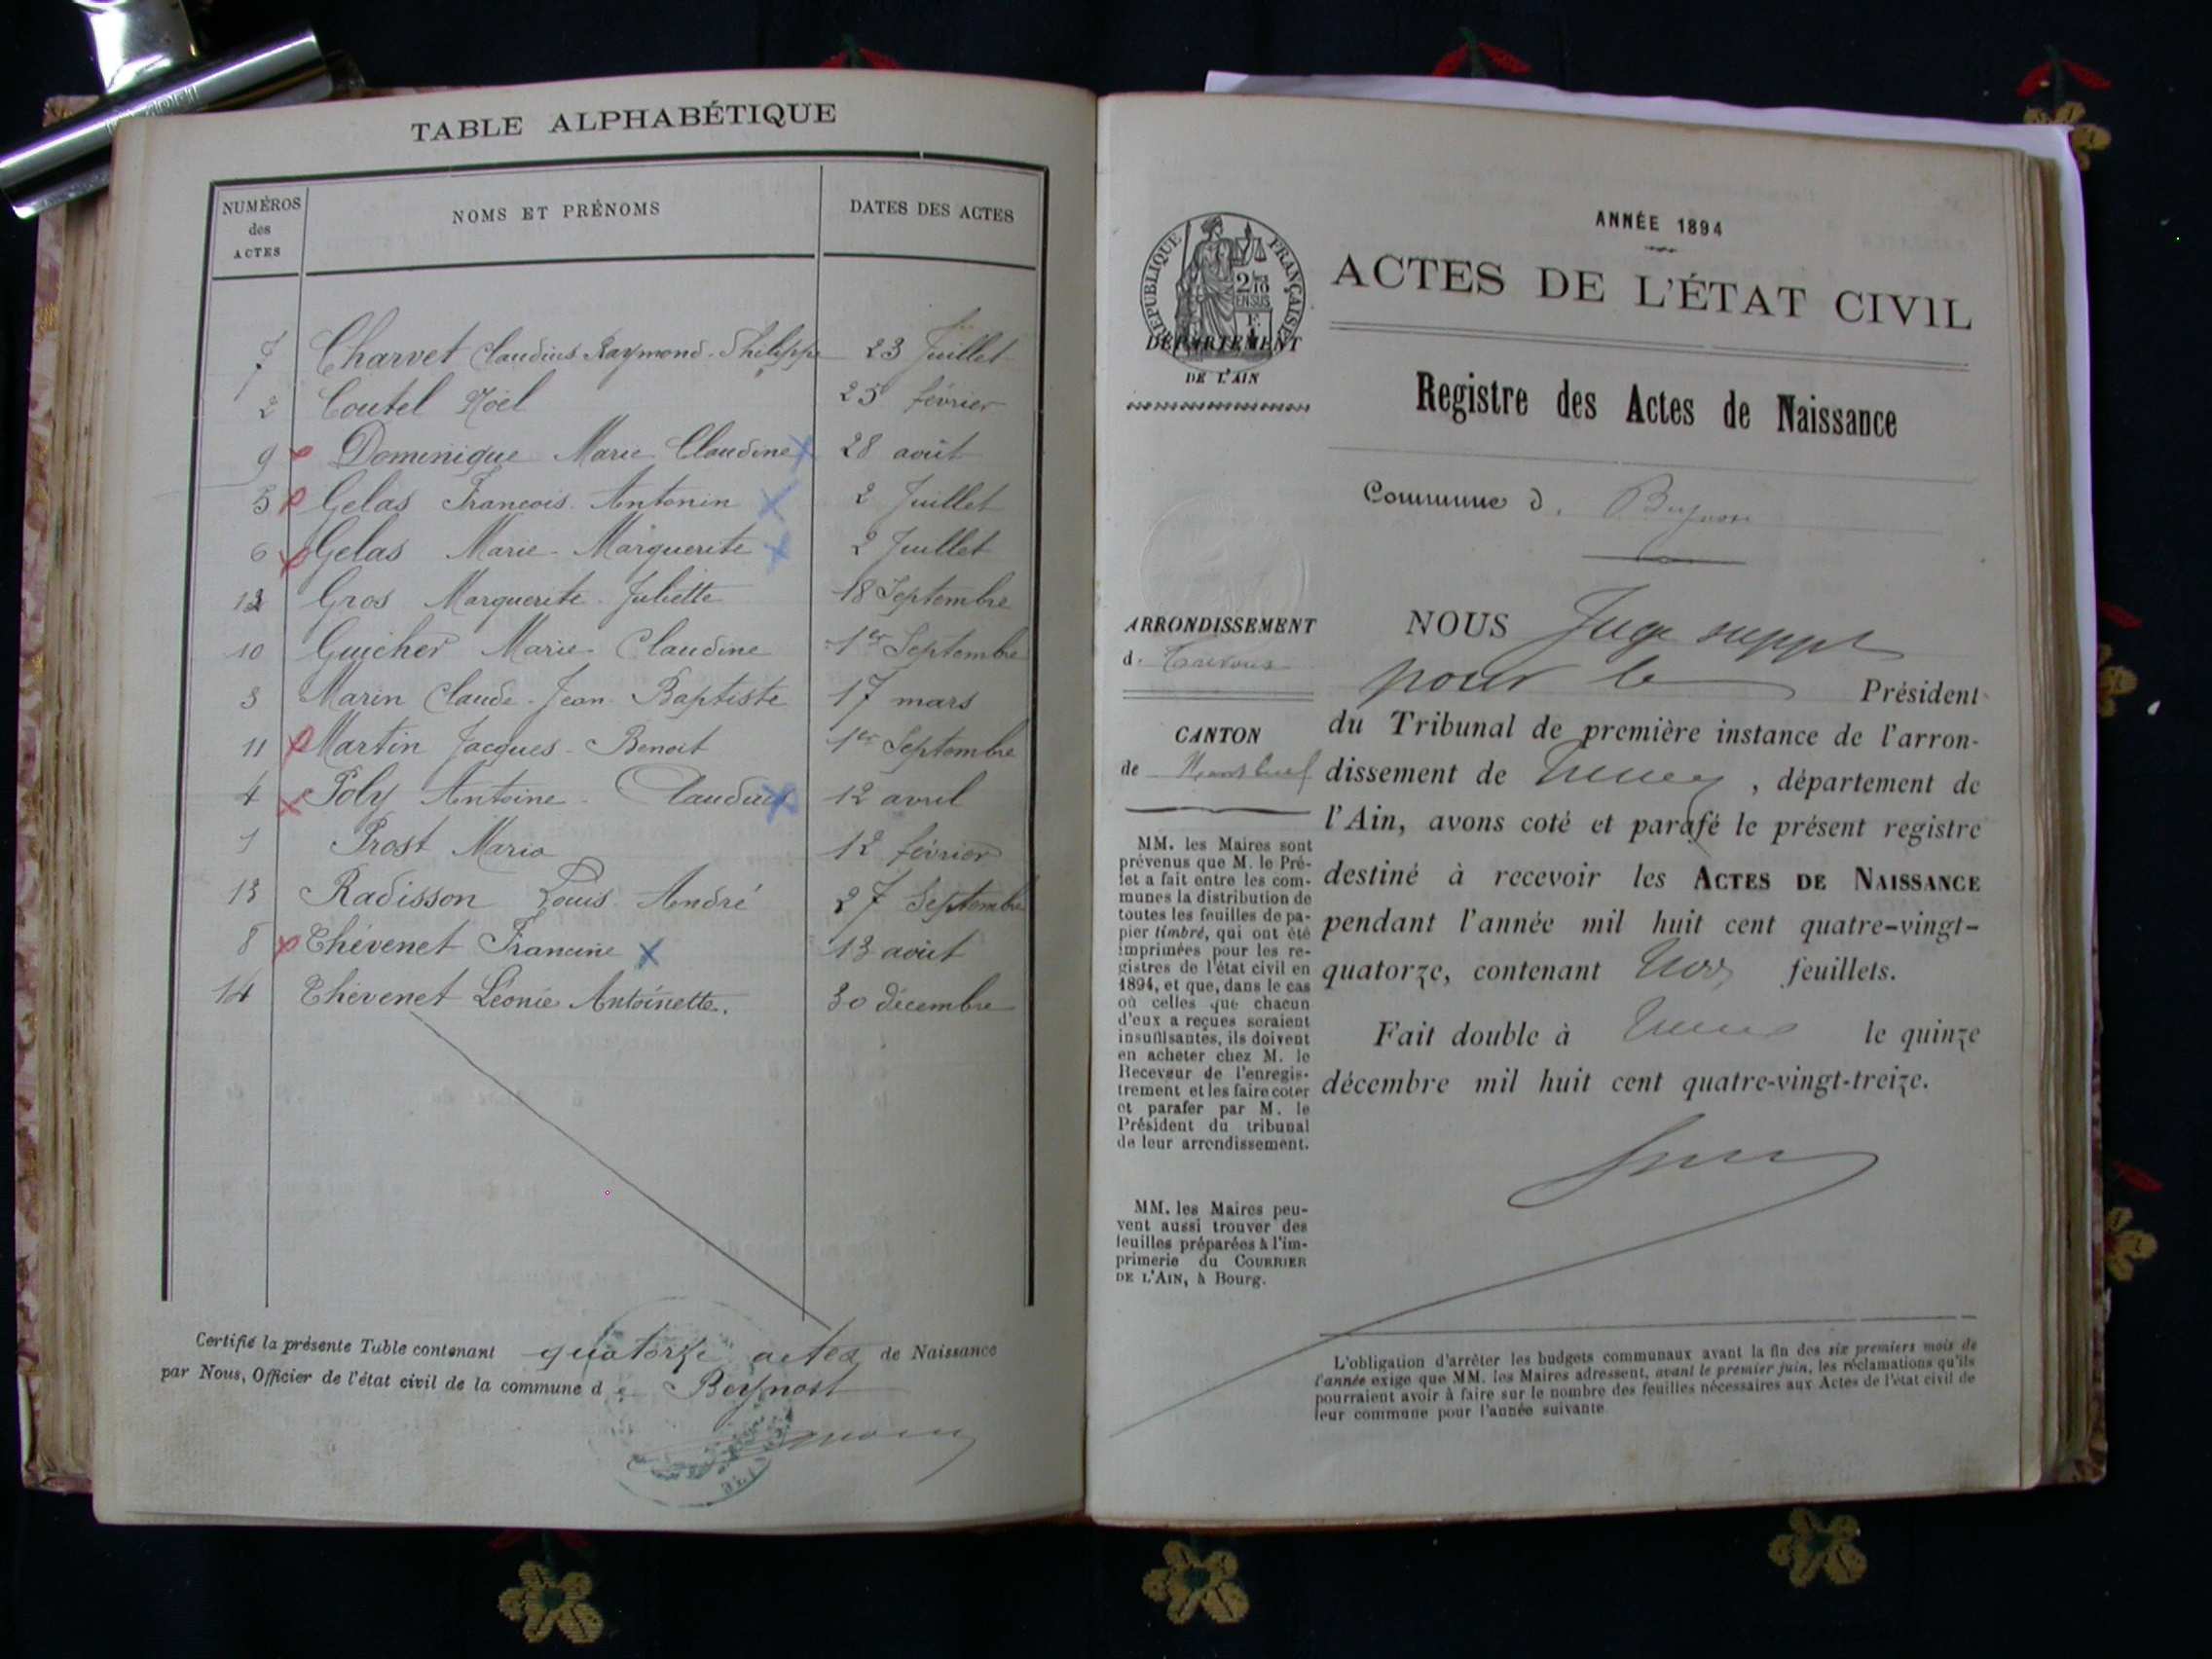 TABLE ALPHABÉTIQUE
NUMÉROS des ACTES NOMS ET PRÉNOMS DATES DES ACTES
7 Charvet Claudius Raymond-Philippe 23 Juillet
2 Coutel Noël 25 février
9 Dominique Marie Claudine 28 août
5 Gelas Francois-Antonin 2 Juillet
6 Gelas Marie-Marguerite 2 Juillet
12 Gros Marguerite-Juliette 18 Septembre
10 Guicher Marie-Claudine 1er Septembre
3 Marin Claude-Jean-Baptiste 17 mars
11 Martin Jacques-Benoit 1er Septembre
4 Poly Antoine-Claudius 12 avril
1 Prost Maria 12 février
13 Radisson Louis André 27 Septembre
8 Thévenet Francine 13 août
14 Thévenet Léonie Antoinette. 30 décembre
Certifié la présente Table contenant quatorze actes de Naissance
par Nous, Officier de l'état civil de la commune de Beynost
ANNÉE 1894
ACTES DE L'ÉTAT CIVIL
RÉPUBLIQUE FRANÇAISE
DÉPARTEMENT
DE L'AIN
Registre des Actes de Naissance
Commune d.
ARRONDISSEMENT
d. Trévoux
CANTON
de Montluel
MM. les Maires sont
prévenus que M. le Pré-
fet a fait entre les com-
munes la distribution de
toutes les feuilles de pa-
pier timbré, qui ont été
imprimées pour les re-
gistres de l'état civil en
1894, et que, dans le cas
où celles que chacun
d'eux a reçues seraient
insuffisantes, ils doivent
en acheter chez M. le
Receveur de l'enregis-
trement et les faire coter
et parafer par M. le
Président du tribunal
de leur arrondissement.
MM. les Maires peu-
vent aussi trouver des
feuilles préparées à l'im-
primerie du COURRIER
DE L'AIN, à Bourg.
NOUS Juge suppt
pour le Président
du Tribunal de première instance de l'arron-
dissement de , département de
l'Ain, avons coté et parafé le présent registre
destiné à recevoir les ACTES DE NAISSANCE
pendant l'année mil huit cent quatre-vingt-
quatorze, contenant feuillets.
Fait double à le quinze
décembre mil huit cent quatre-vingt-treize.
L'obligation d'arrêter les budgets communaux avant la fin des six premiers mois de
l'année exige que MM. les Maires adressent, avant le premier juin, les réclamations qu'ils
pourraient avoir à faire sur le nombre des feuilles nécessaires aux Actes de l'état civil de
leur commune pour l'année suivante.